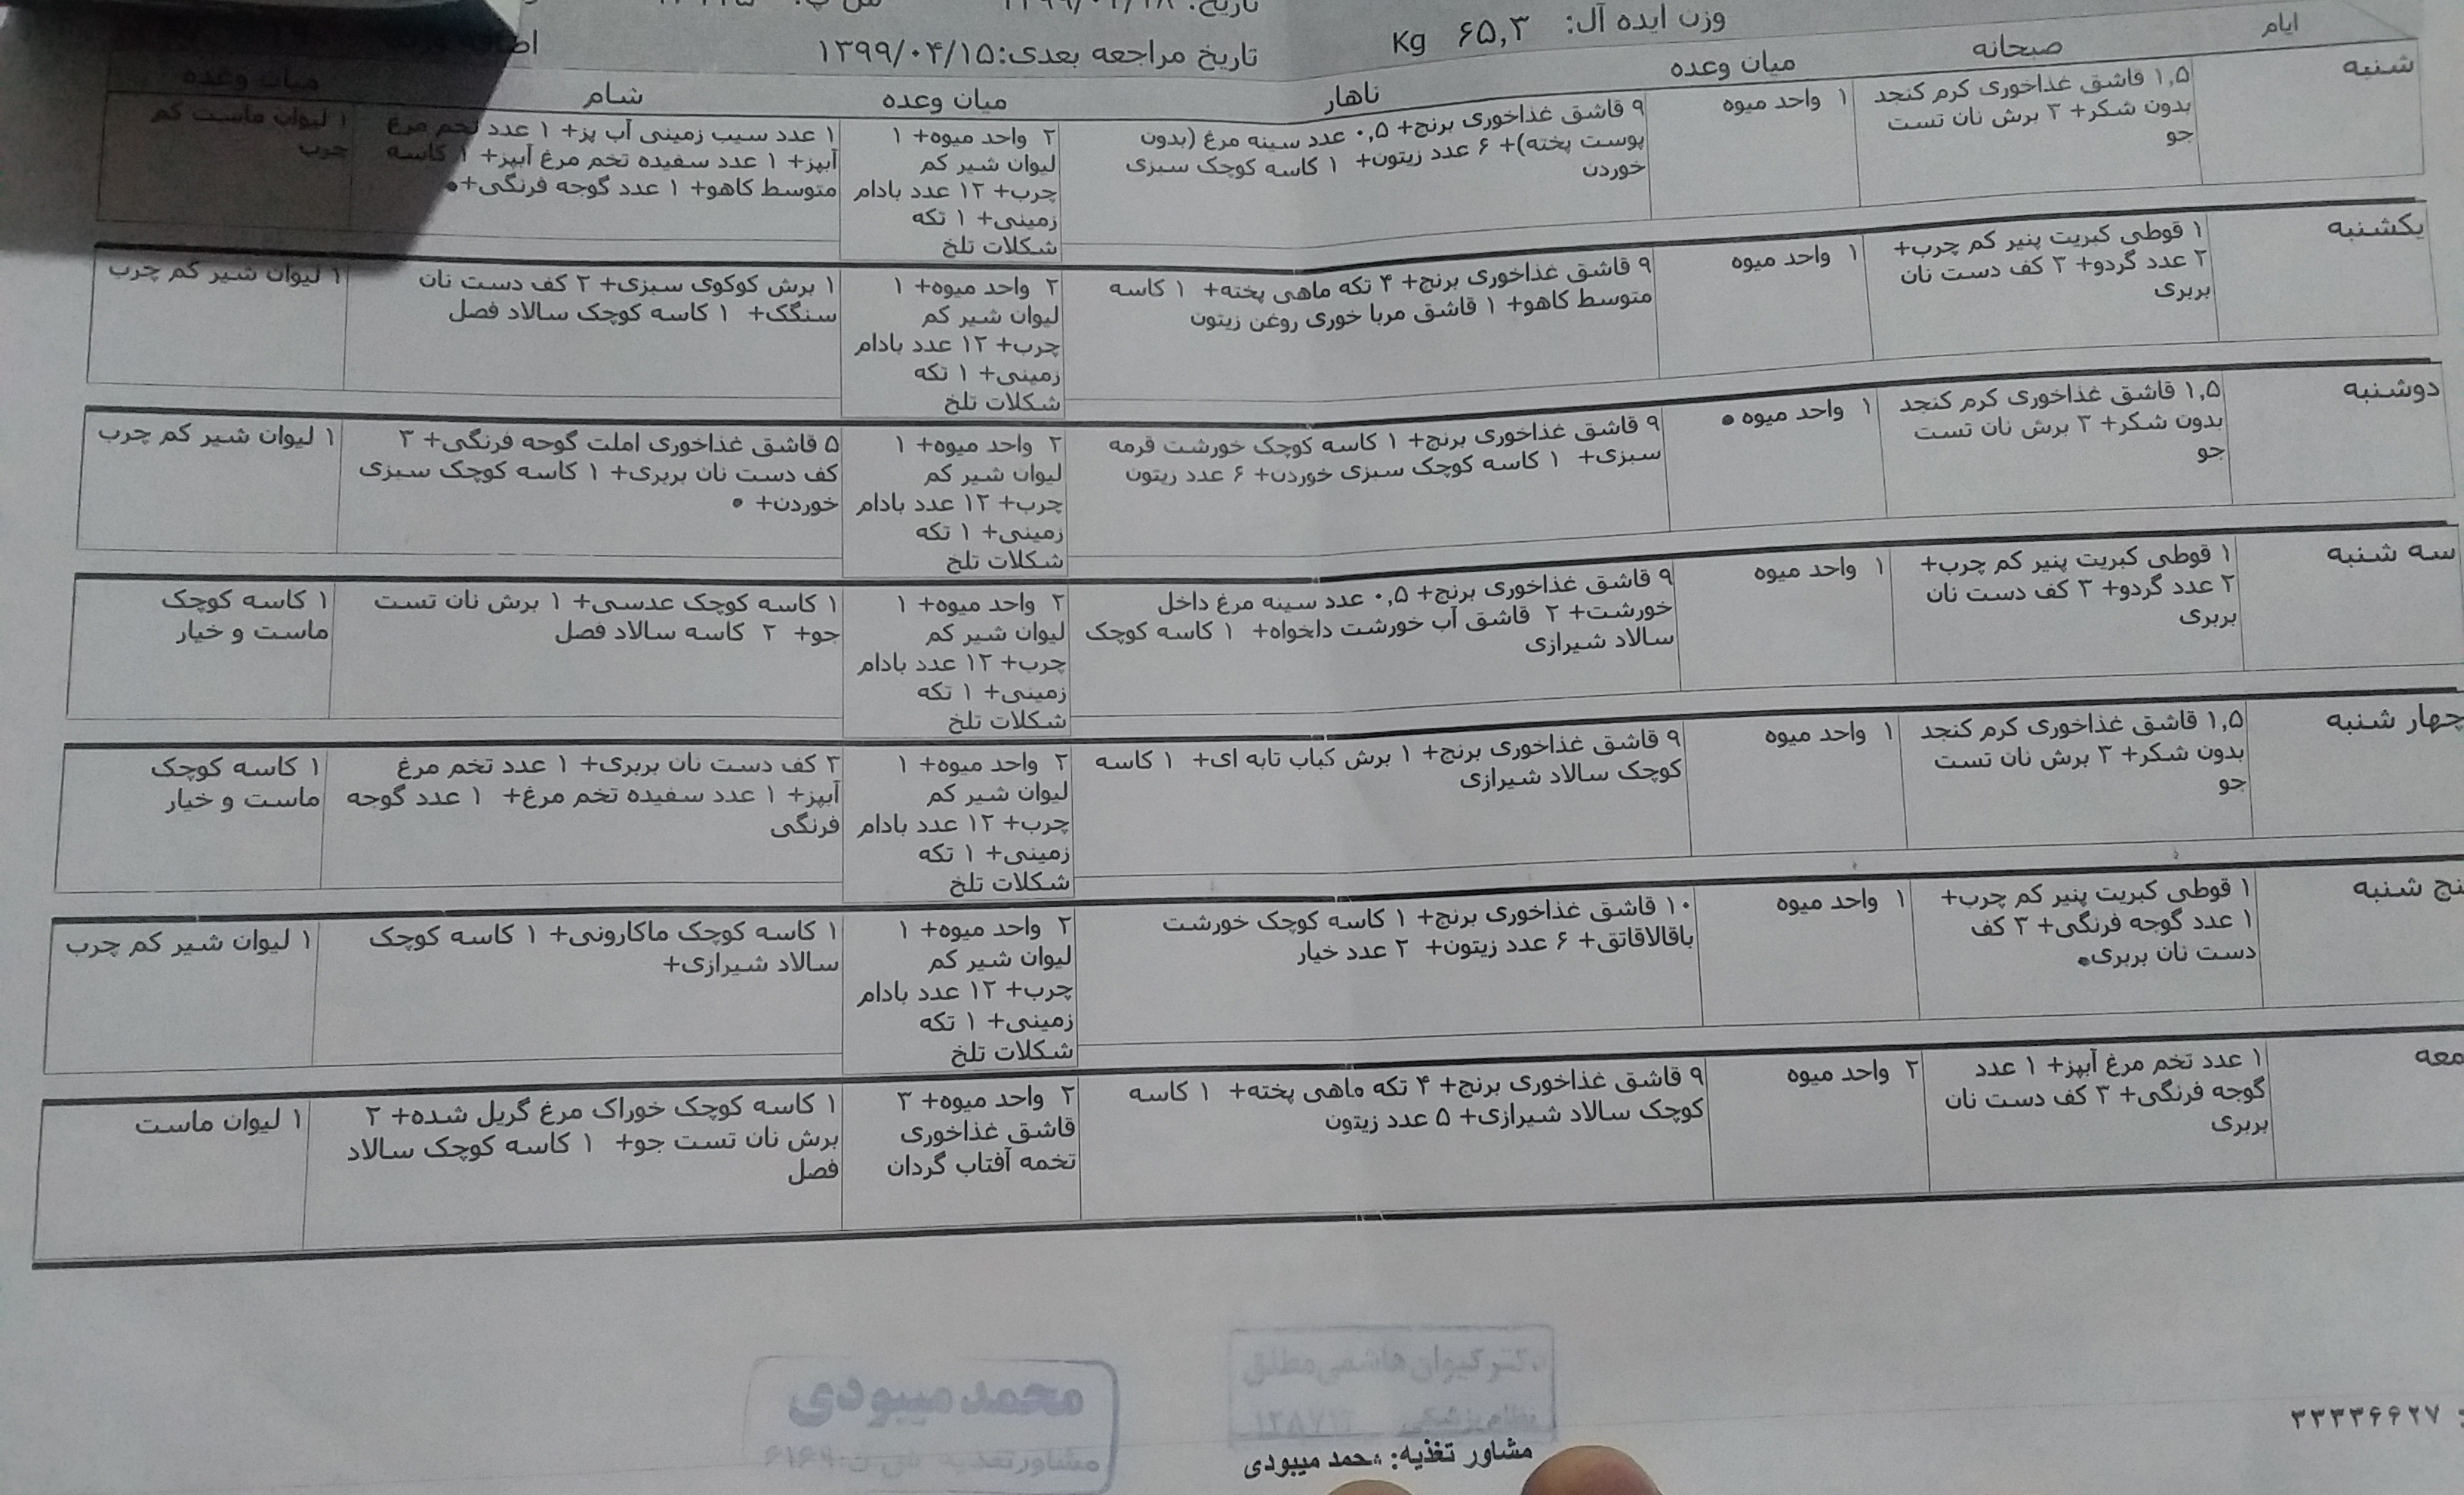 وزن ایده آل: ۶۵,۳ Kg
تاریخ مراجعه بعدی:۱۳۹۹/۰۴/۱۵
ایام صبحانه میان وعده ناهار میان وعده شام میان وعده
شنبه
۱,۵ قاشق غذاخوری کرم کنجد
بدون شکر+ ۳ برش نان تست
جو
۱ واحد میوه
۹ قاشق غذاخوری برنج+ ۰,۵ عدد سینه مرغ (بدون
پوست پخته)+ ۶ عدد زیتون+ ۱ کاسه کوچک سبزی
خوردن
۲ واحد میوه+ ۱
لیوان شیر کم
چرب+ ۱۲ عدد بادام
زمینی+ ۱ تکه
شکلات تلخ
۱ عدد سیب زمینی آب پز+ ۱ عدد تخم مرغ
آبپز+ ۱ عدد سفیده تخم مرغ آبپز+ ۱ کاسه
متوسط کاهو+ ۱ عدد گوجه فرنگی+
۱ لیوان ماست کم
چرب
یکشنبه
۱ قوطی کبریت پنیر کم چرب+
۲ عدد گردو+ ۳ کف دست نان
بربری
۱ واحد میوه
۹ قاشق غذاخوری برنج+ ۴ تکه ماهی پخته+ ۱ کاسه
متوسط کاهو+ ۱ قاشق مربا خوری روغن زیتون
۲ واحد میوه+ ۱
لیوان شیر کم
چرب+ ۱۲ عدد بادام
زمینی+ ۱ تکه
شکلات تلخ
۱ برش کوکوی سبزی+ ۲ کف دست نان
سنگک+ ۱ کاسه کوچک سالاد فصل
۱ لیوان شیر کم چرب
دوشنبه
۱,۵ قاشق غذاخوری کرم کنجد
بدون شکر+ ۳ برش نان تست
جو
۱ واحد میوه
۹ قاشق غذاخوری برنج+ ۱ کاسه کوچک خورشت قرمه
سبزی+ ۱ کاسه کوچک سبزی خوردن+ ۶ عدد زیتون
۲ واحد میوه+ ۱
لیوان شیر کم
چرب+ ۱۲ عدد بادام
زمینی+ ۱ تکه
شکلات تلخ
۵ قاشق غذاخوری املت گوجه فرنگی+ ۳
کف دست نان بربری+ ۱ کاسه کوچک سبزی
خوردن+
۱ لیوان شیر کم چرب
سه شنبه
۱ قوطی کبریت پنیر کم چرب+
۲ عدد گردو+ ۳ کف دست نان
بربری
۱ واحد میوه
۹ قاشق غذاخوری برنج+ ۰,۵ عدد سینه مرغ داخل
خورشت+ ۲ قاشق آب خورشت دلخواه+ ۱ کاسه کوچک
سالاد شیرازی
۲ واحد میوه+ ۱
لیوان شیر کم
چرب+ ۱۲ عدد بادام
زمینی+ ۱ تکه
شکلات تلخ
۱ کاسه کوچک عدسی+ ۱ برش نان تست
جو+ ۲ کاسه سالاد فصل
۱ کاسه کوچک
ماست و خیار
چهار شنبه
۱,۵ قاشق غذاخوری کرم کنجد
بدون شکر+ ۳ برش نان تست
جو
۱ واحد میوه
۹ قاشق غذاخوری برنج+ ۱ برش کباب تابه ای+ ۱ کاسه
کوچک سالاد شیرازی
۲ واحد میوه+ ۱
لیوان شیر کم
چرب+ ۱۲ عدد بادام
زمینی+ ۱ تکه
شکلات تلخ
۳ کف دست نان بربری+ ۱ عدد تخم مرغ
آبپز+ ۱ عدد سفیده تخم مرغ+ ۱ عدد گوجه
فرنگی
۱ کاسه کوچک
ماست و خیار
نج شنبه
۱ قوطی کبریت پنیر کم چرب+
۱ عدد گوجه فرنگی+ ۳ کف
دست نان بربری
۱ واحد میوه
۱۰ قاشق غذاخوری برنج+ ۱ کاسه کوچک خورشت
باقالاقاتق+ ۶ عدد زیتون+ ۲ عدد خیار
۲ واحد میوه+ ۱
لیوان شیر کم
چرب+ ۱۲ عدد بادام
زمینی+ ۱ تکه
شکلات تلخ
۱ کاسه کوچک ماکارونی+ ۱ کاسه کوچک
سالاد شیرازی+
۱ لیوان شیر کم چرب
معه
۱ عدد تخم مرغ آبپز+ ۱ عدد
گوجه فرنگی+ ۳ کف دست نان
بربری
۲ واحد میوه
۹ قاشق غذاخوری برنج+ ۴ تکه ماهی پخته+ ۱ کاسه
کوچک سالاد شیرازی+ ۵ عدد زیتون
۲ واحد میوه+ ۳
قاشق غذاخوری
تخمه آفتاب گردان
۱ کاسه کوچک خوراک مرغ گریل شده+ ۲
برش نان تست جو+ ۱ کاسه کوچک سالاد
فصل
۱ لیوان ماست
دکتر کیوان هاشمی مطلق
نظام پزشکی
محمد میبودی
مشاور تغذیه
۳۳۳۳۶۶۲۷
مشاور تغذیه: محمد میبودی